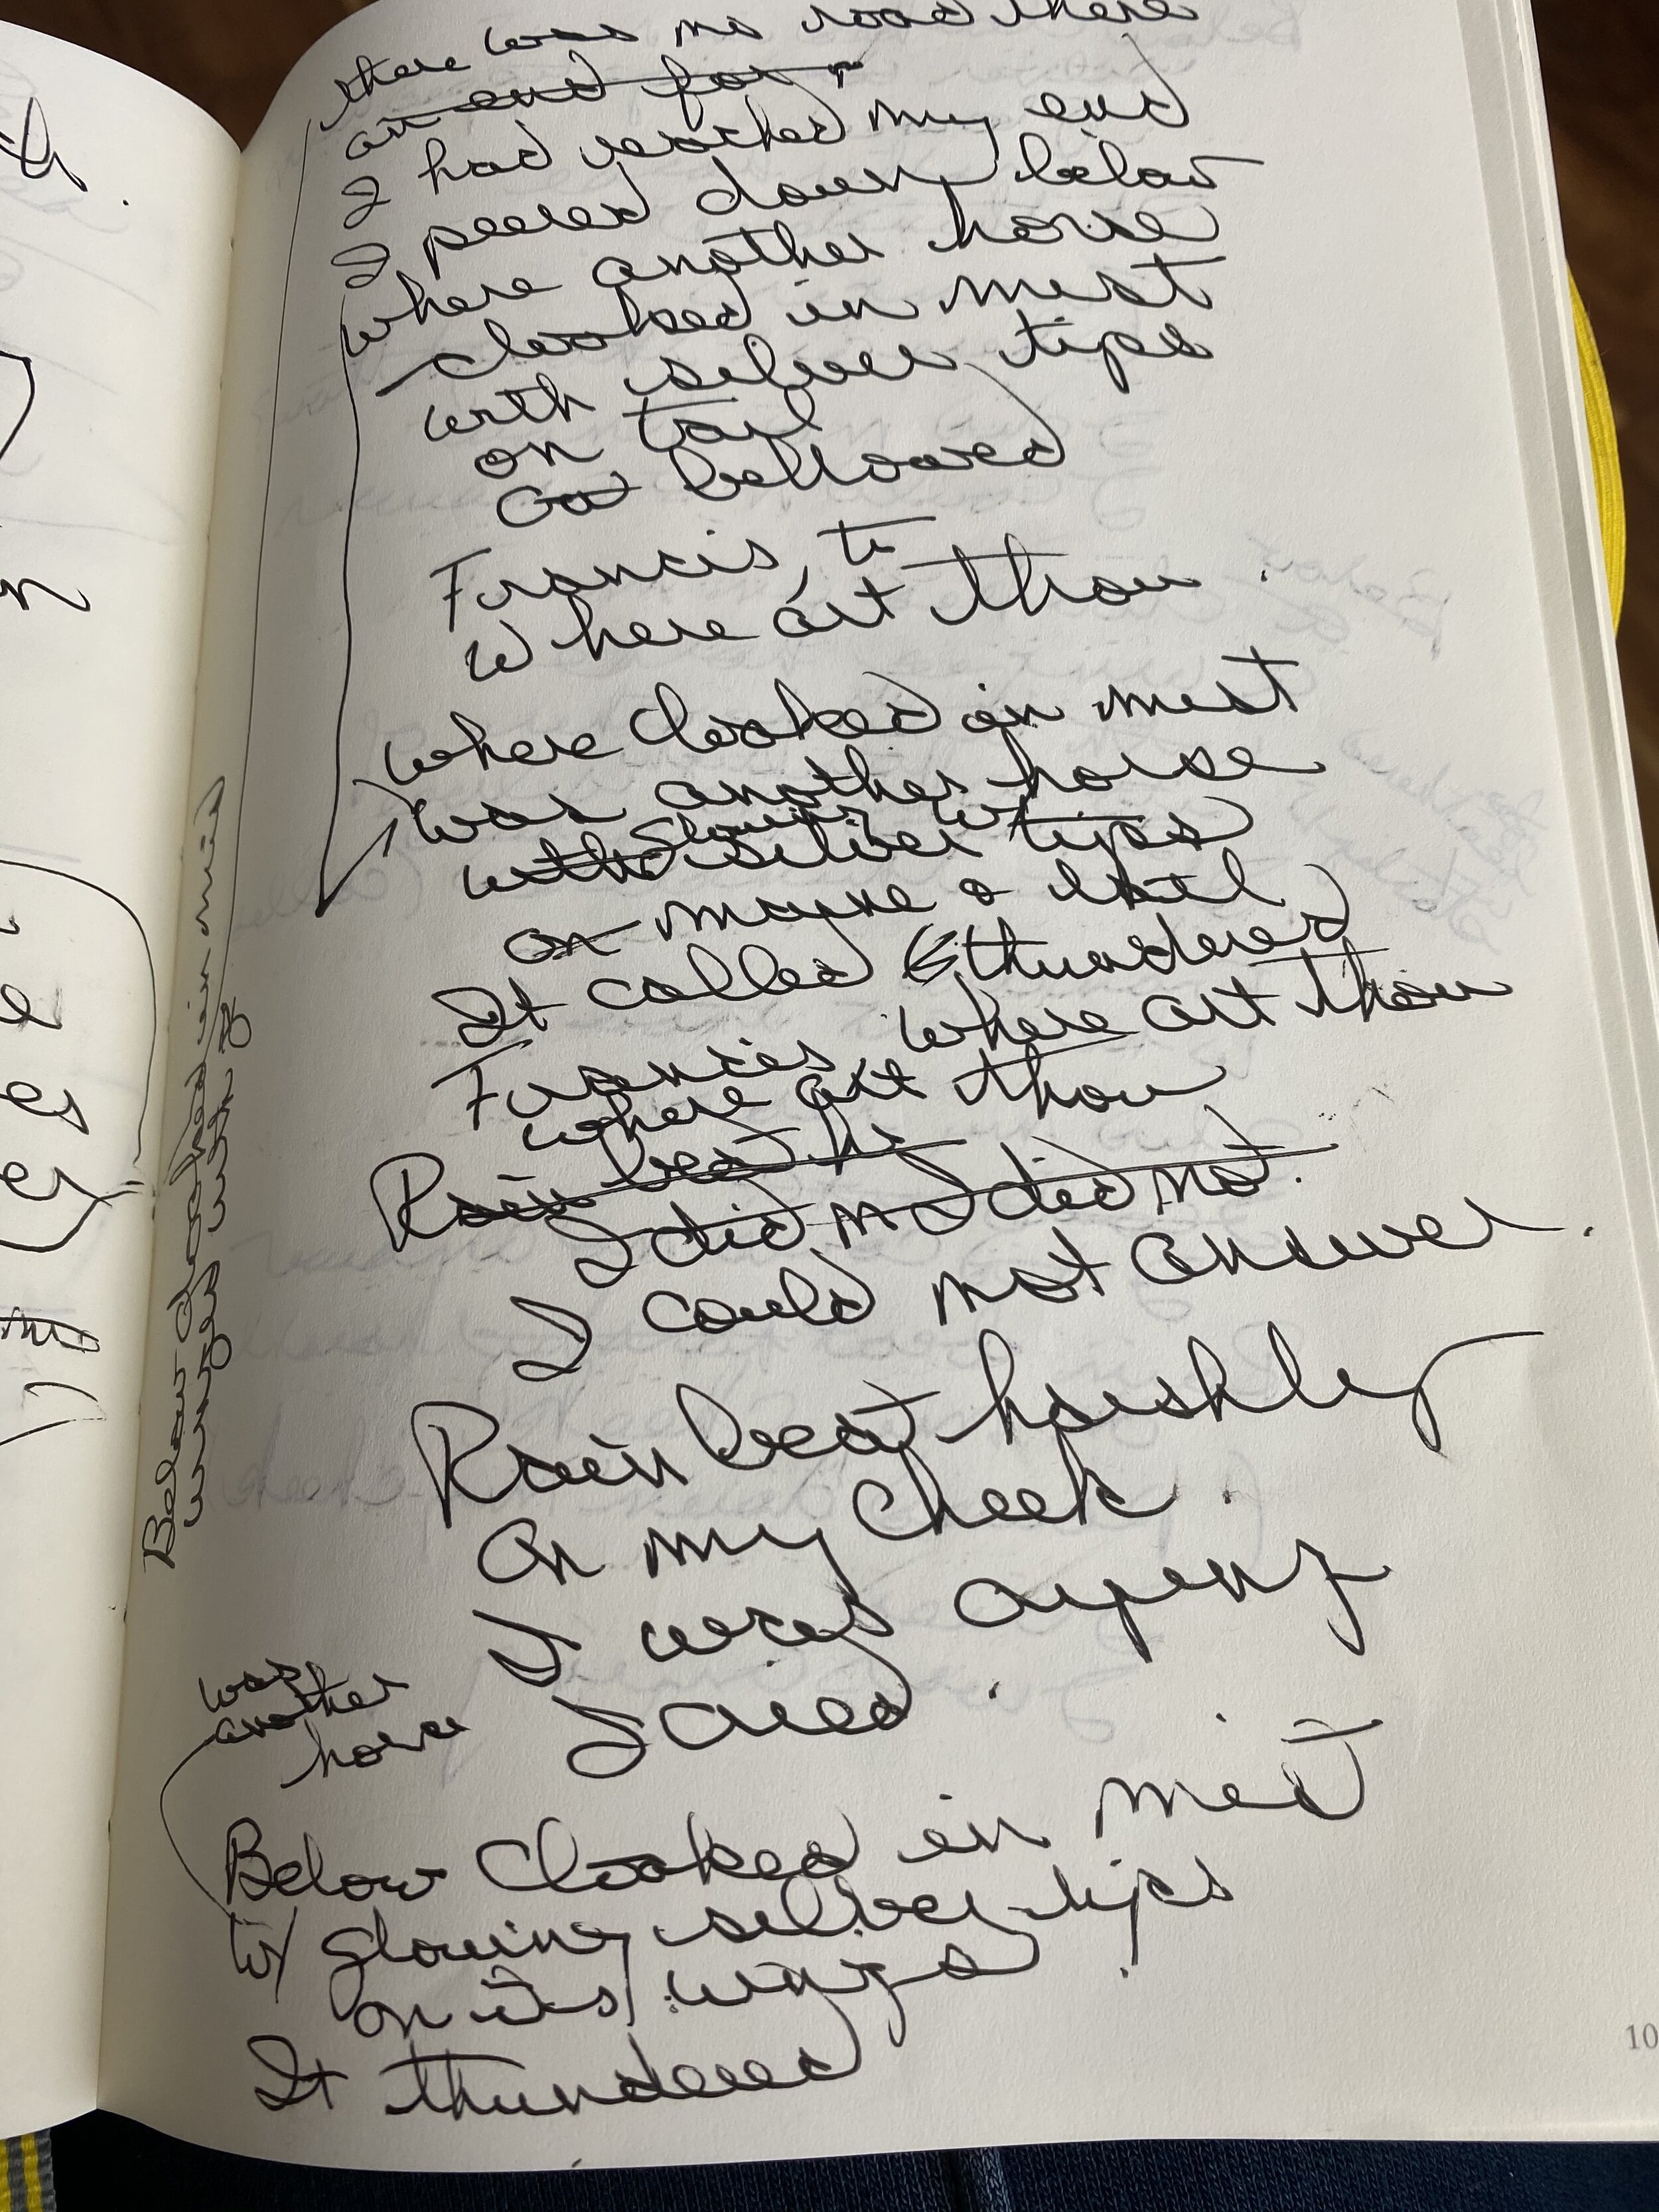 there was no road there
an end for
I had reached my end
I peered down below
where another horse
cloaked in mist
with silver tips
on tail
bellowed
Francis, te
Where art thou.
where cloaked in mist
was another horse
glowing w/
with silver tips
on mayne & tail
It called thundered
Francis, where art thou
where art thou
Rain beat he
I did no I did not.
I could not answer.
Rain beat harshly
on my cheek.
I was
I cried.
was
another
horse
Below cloaked in mist
w/ glowing silver tips
on its wings.
It thundered
Below cloaked in mist
wings with
10